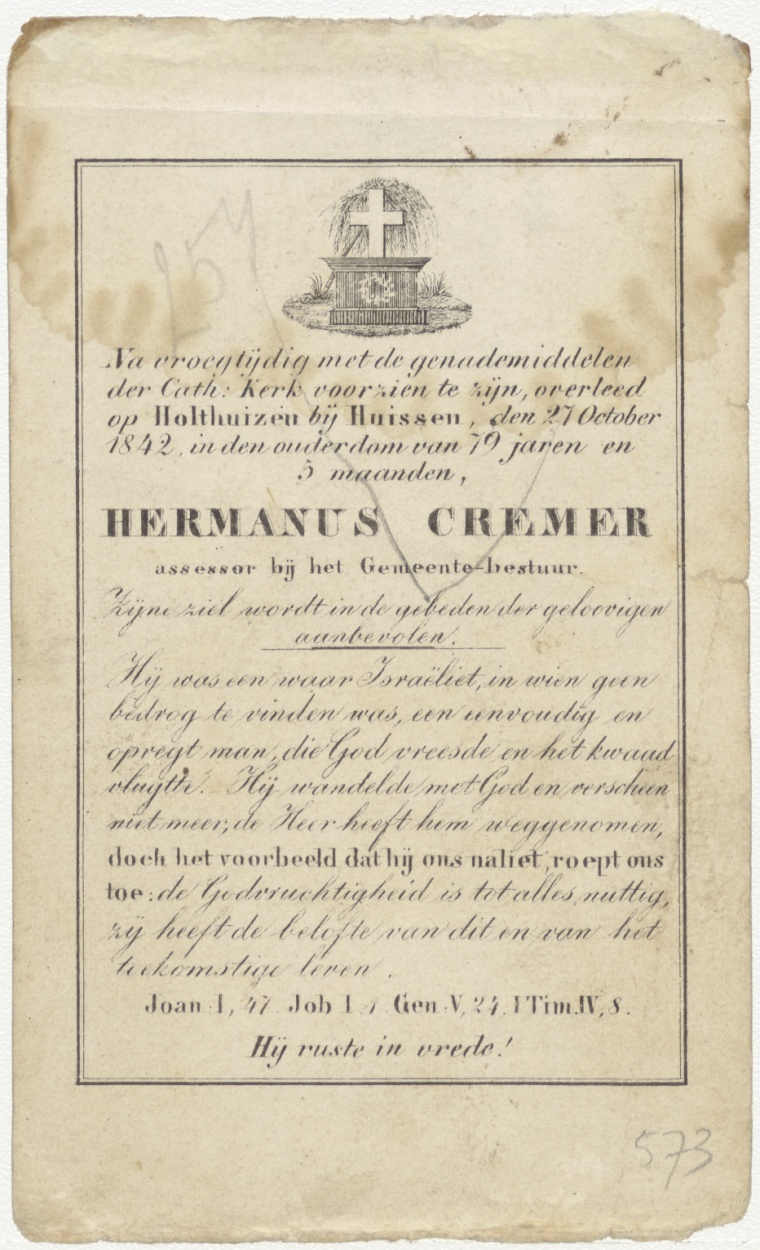 257
Na vroegtijdig met de genademiddelen
der Cath: Kerk voorzien te zijn, overleed
op Holthuizen bij Huissen, den 27 October
1842, in den ouderdom van 79 jaren en
5 maanden,
HERMANUS CREMER
assessor bij het Gemeente-bestuur.
Zijne ziel wordt in de gebeden der geloovigen
aanbevolen.
Hij was een waar Israëliet, in wien geen
bedrog te vinden was, een eenvoudig en
opregt man, die God vreesde en het kwaad
vlugtte. Hij wandelde met God en verscheen
niet meer, de Heer heeft hem weggenomen,
doch het voorbeeld dat hij ons naliet, roept ons
toe: de Godvruchtigheid is tot alles nuttig,
zij heeft de belofte van dit en van het
toekomstige leven.
Joan I, 47. Job I. 1. Gen. V, 24. I Tim. IV, 8.
Hij ruste in vrede!
573